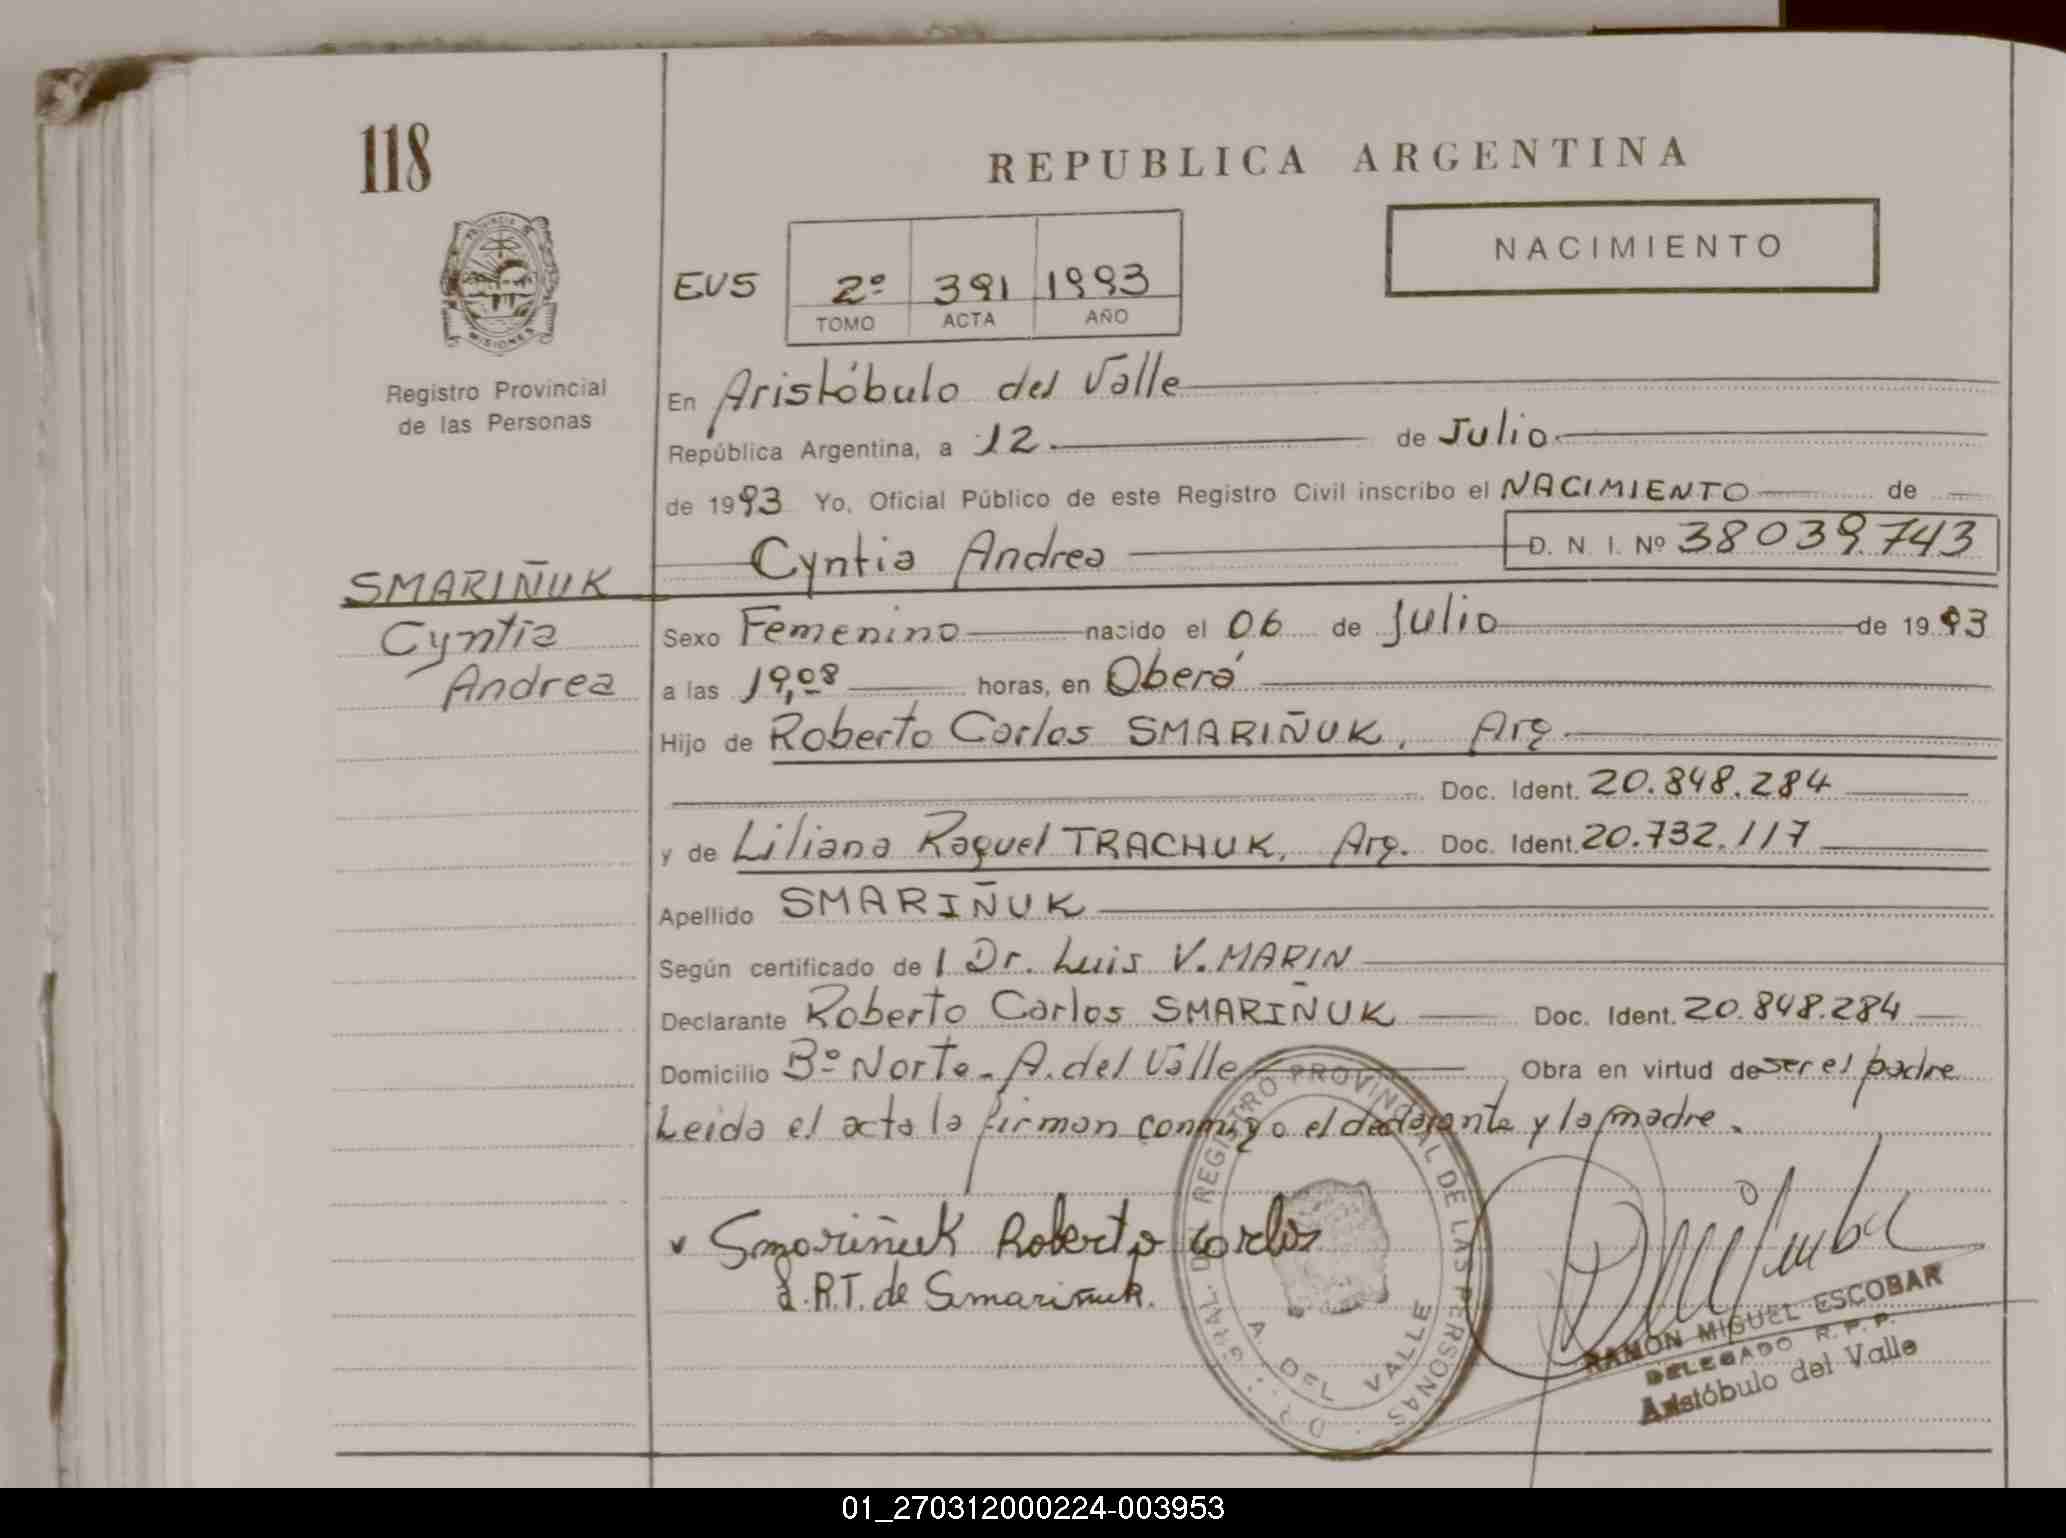 118
REPUBLICA ARGENTINA
NACIMIENTO
PROVINCIA DE MISIONES
EV5 2º 391 1993
TOMO ACTA AÑO
Registro Provincial
de las Personas
En Aristóbulo del Valle
República Argentina, a 12 de Julio
de 1993 Yo, Oficial Público de este Registro Civil inscribo el NACIMIENTO de
Cyntia Andrea D. N. I. Nº 38039.743
SMARIÑUK
Cyntia
Andrea
Sexo Femenino nacido el 06 de Julio de 1993
a las 19,08 horas, en Oberá
Hijo de Roberto Carlos SMARIÑUK, Arg.
Doc. Ident. 20.848.284
y de Liliana Raquel TRACHUK, Arg. Doc. Ident. 20.732.117
Apellido SMARIÑUK
Según certificado de l Dr. Luis V. MARIN
Declarante Roberto Carlos SMARIÑUK Doc. Ident. 20.848.284
Domicilio Bº Norte - A. del Valle Obra en virtud de ser el padre
Leida el acta la firman conmigo el declarante y la madre.
Smariñuk Roberto Carlos
L.R.T. de Smariñuk.
D.R. GRAL. DEL REGISTRO PROVINCIAL DE LAS PERSONAS
A. DEL VALLE
RAMON MIGUEL ESCOBAR
DELEGADO R. P. P.
Aristóbulo del Valle
01_270312000224-003953